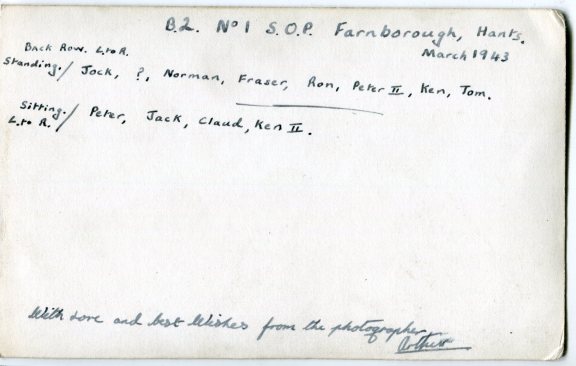 B.2. No 1 S.O.P. Farnborough, Hants.
March 1943
Back Row. L to R.
Standing./ Jock, ?, Norman, Fraser, Ron, Peter II, Ken, Tom.
Sitting./ Peter, Jack, Claud, Ken II.
L to R.
With Love and best Wishes from the photographer
Arthur